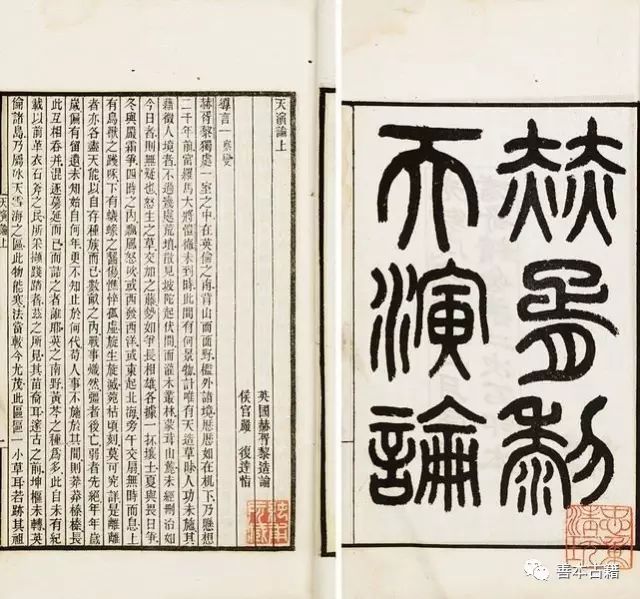 赫胥黎
天演論
天演論上
導言一 察變
英國赫胥黎造論
侯官嚴 復達恉
赫胥黎獨處一室之中在英倫之南背山而面野檻外諸境歷歷如在机下乃懸想
二千年前當羅馬大將愷徹未到時此間有何景物計唯有天造草昧人功未施其
藉徵人境者不過幾處荒墳散見坡陀起伏間而灌木叢林蒙茸山麓未經刪治如
今日者則無疑也怒生之草交加之藤勢如爭長相雄各據一抔壤土夏與畏日爭
冬與嚴霜爭四時之內飄風怒吹或西發西洋或東起北海旁午交扇無時而息上
有鳥獸之踐啄下有蟻蝝之齧傷憔悴孤虛旋生旋滅菀枯頃刻莫可究詳是離離
者亦各盡天能以自存種族而已數畝之內戰事熾然彊者後亡弱者先絕年年歲
歲偏有留遺未知始自何年更不知止於何代苟人事不施於其間則莽莽榛榛長
此互相吞并混逐蔓延而已而詰之者誰耶英之南野黃芩之種為多此自未有紀
載以前革衣石斧之民所采擷踐踏者茲之所見其苗裔耳邃古之前坤樞未轉英
倫諸島乃屬冰天雪海之區此物能寒法當較今尤茂此區區一小草耳若跡其祖
天演論上
善本古籍